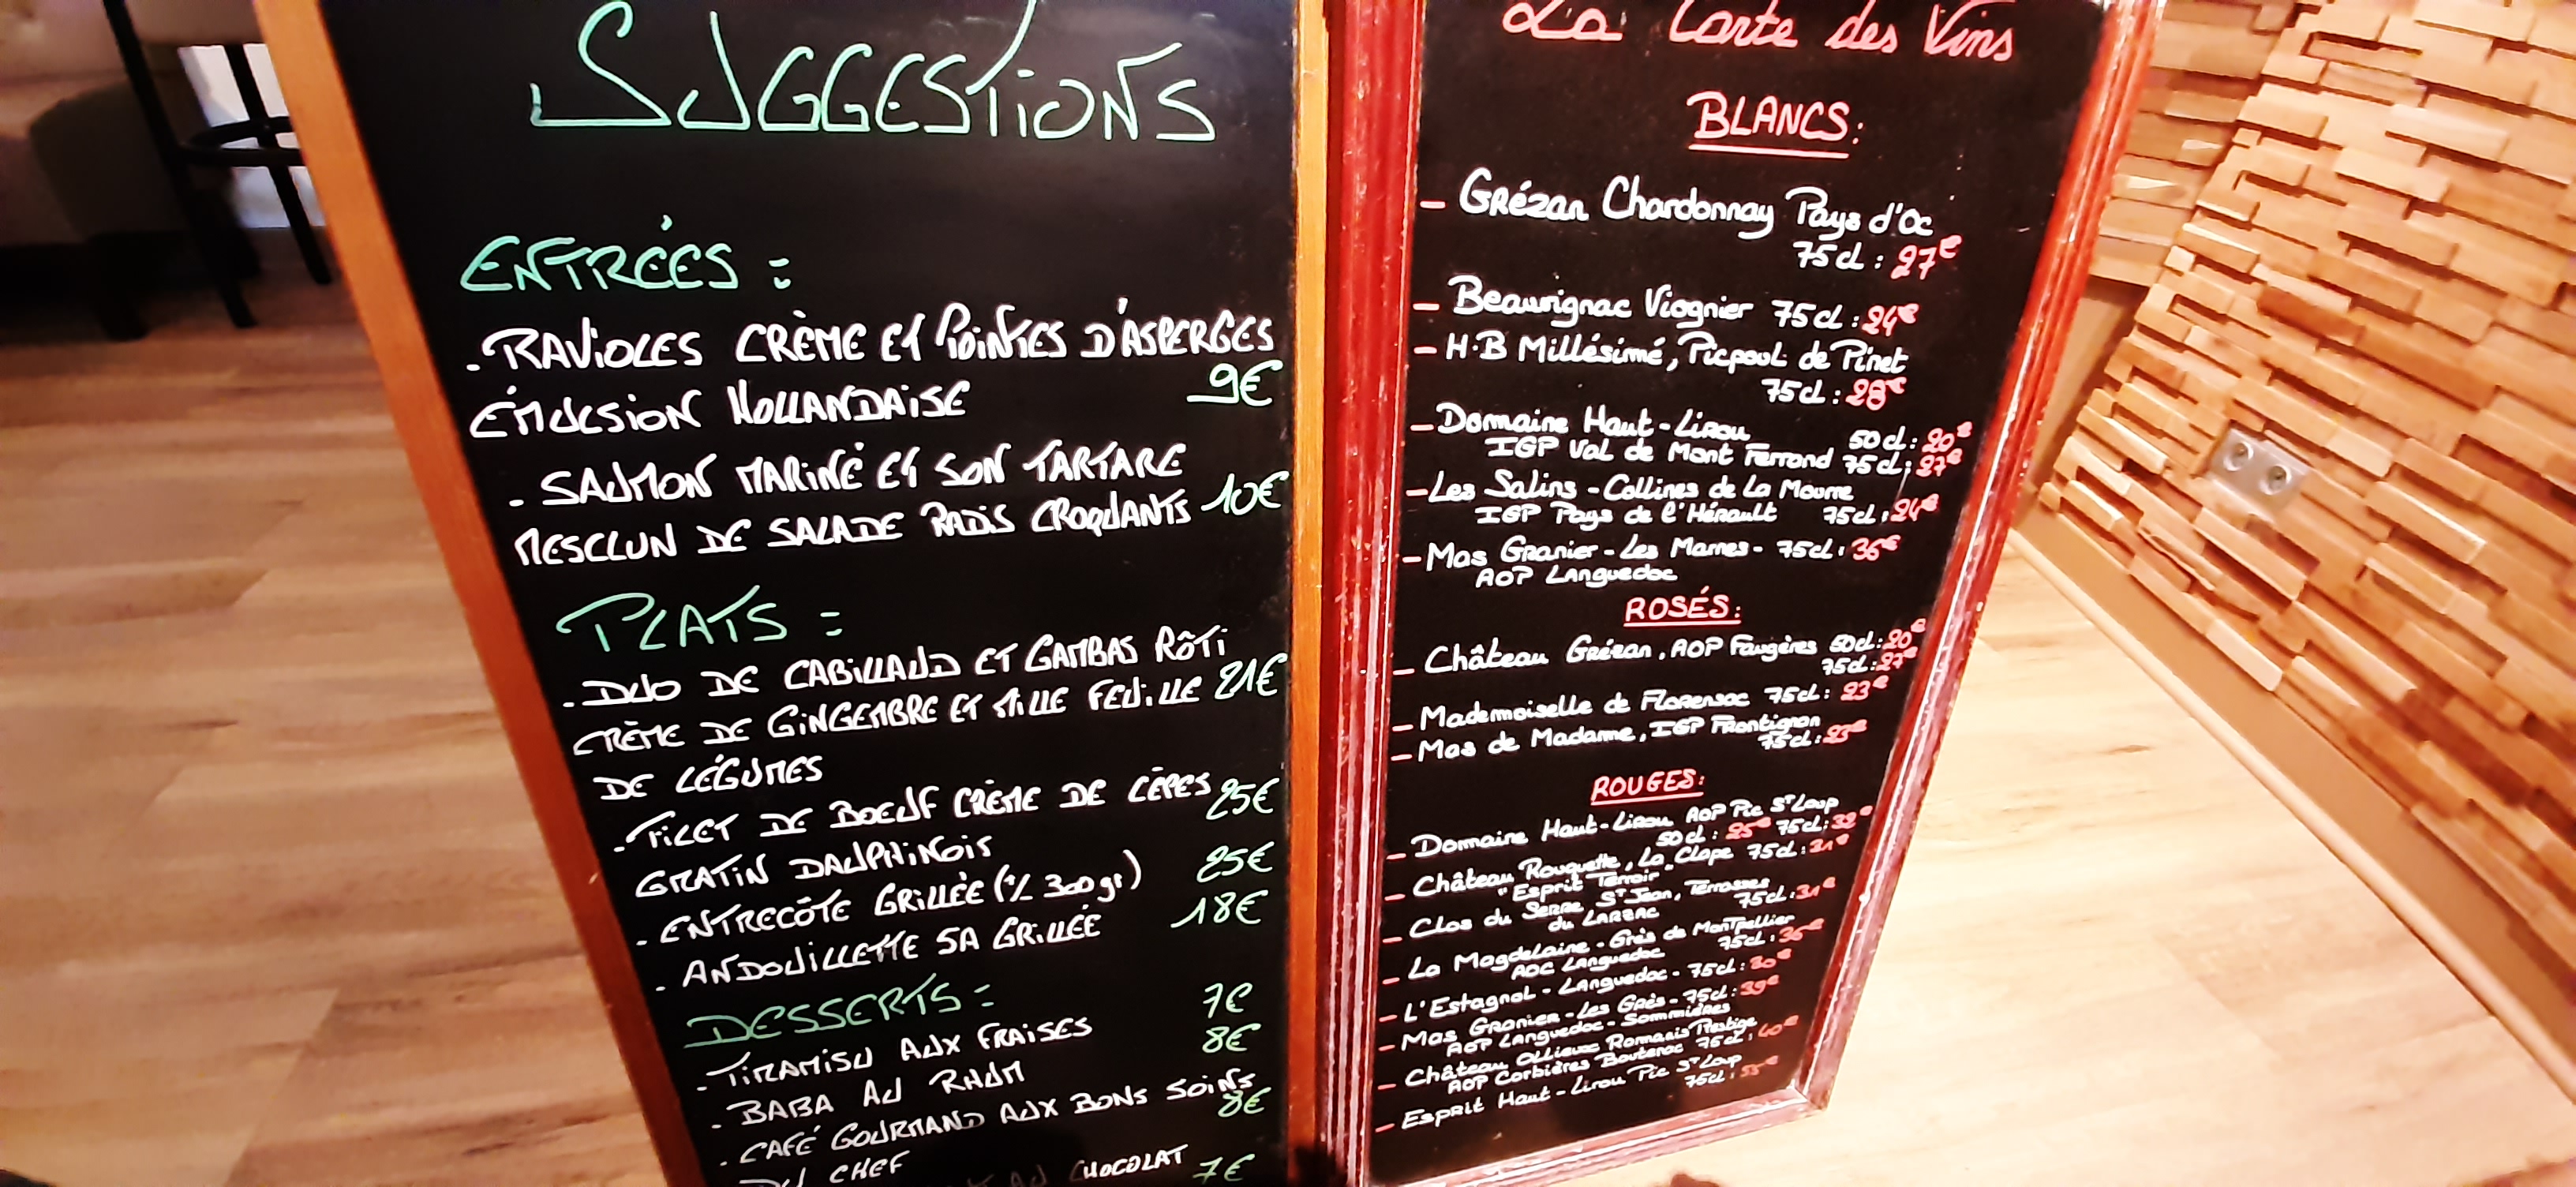 SUGGESTIONS
ENTRÉES :
. RAVIOLES CRÈME ET POINTES D'ASPERGES
ÉMULSION HOLLANDAISE 9€
. SAUMON MARINÉ ET SON TARTARE
MESCLUN DE SALADE RADIS CROQUANTS 10€
PLATS :
. DUO DE CABILLAUD ET GAMBAS RÔTI
CRÈME DE GINGEMBRE ET MILLE FEUILLE 21€
DE LÉGUMES
. FILET DE BOEUF CRÈME DE CÈPES 25€
GRATIN DAUPHINOIS
. ENTRECÔTE GRILLÉE (+/- 300gr) 25€
. ANDOUILLETTE 5A GRILLÉE 18€
DESSERTS :
. TIRAMISU AUX FRAISES 7€
. BABA AU RHUM 8€
. CAFÉ GOURMAND AUX BONS SOINS
DU CHEF 8€
AU CHOCOLAT 7€
La Carte des Vins
BLANCS :
- Grézan Chardonnay Pays d'Oc
75cl : 27€
- Beauvignac Viognier 75cl : 24€
- H.B Millésimé, Picpoul de Pinet
75cl : 28€
- Domaine Haut-Lirou 50cl : 20€
IGP Val de Mont Ferrand 75cl : 27€
- Les Salins - Collines de La Moure
IGP Pays de l'Hérault 75cl : 24€
- Mas Granier - Les Marnes - 75cl : 36€
AOP Languedoc
ROSÉS :
- Château Grézan, AOP Faugères 50cl : 20€
75cl : 27€
- Mademoiselle de Florensac 75cl : 23€
- Mas de Madame, IGP Frontignan
75cl : 23€
ROUGES :
- Domaine Haut-Lirou AOP Pic St Loup
50cl : 25€ 75cl : 32€
- Château Rouquette, La Clape 75cl : 31€
"Esprit Terroir"
- Clos du Serre St Jean, Terrasses
du LARZAC 75cl : 31€
- La Magdelaine - Grès de Montpellier
AOC Languedoc 75cl : 36€
- L'Estagnol - Languedoc - 75cl : 30€
- Mas Granier - Les Grès - 75cl : 39€
AOP Languedoc - Sommières
- Château Ollieux Romanis Prestige
AOP Corbières Boutenac 75cl : 40€
- Esprit Haut-Lirou Pic St Loup
75cl :